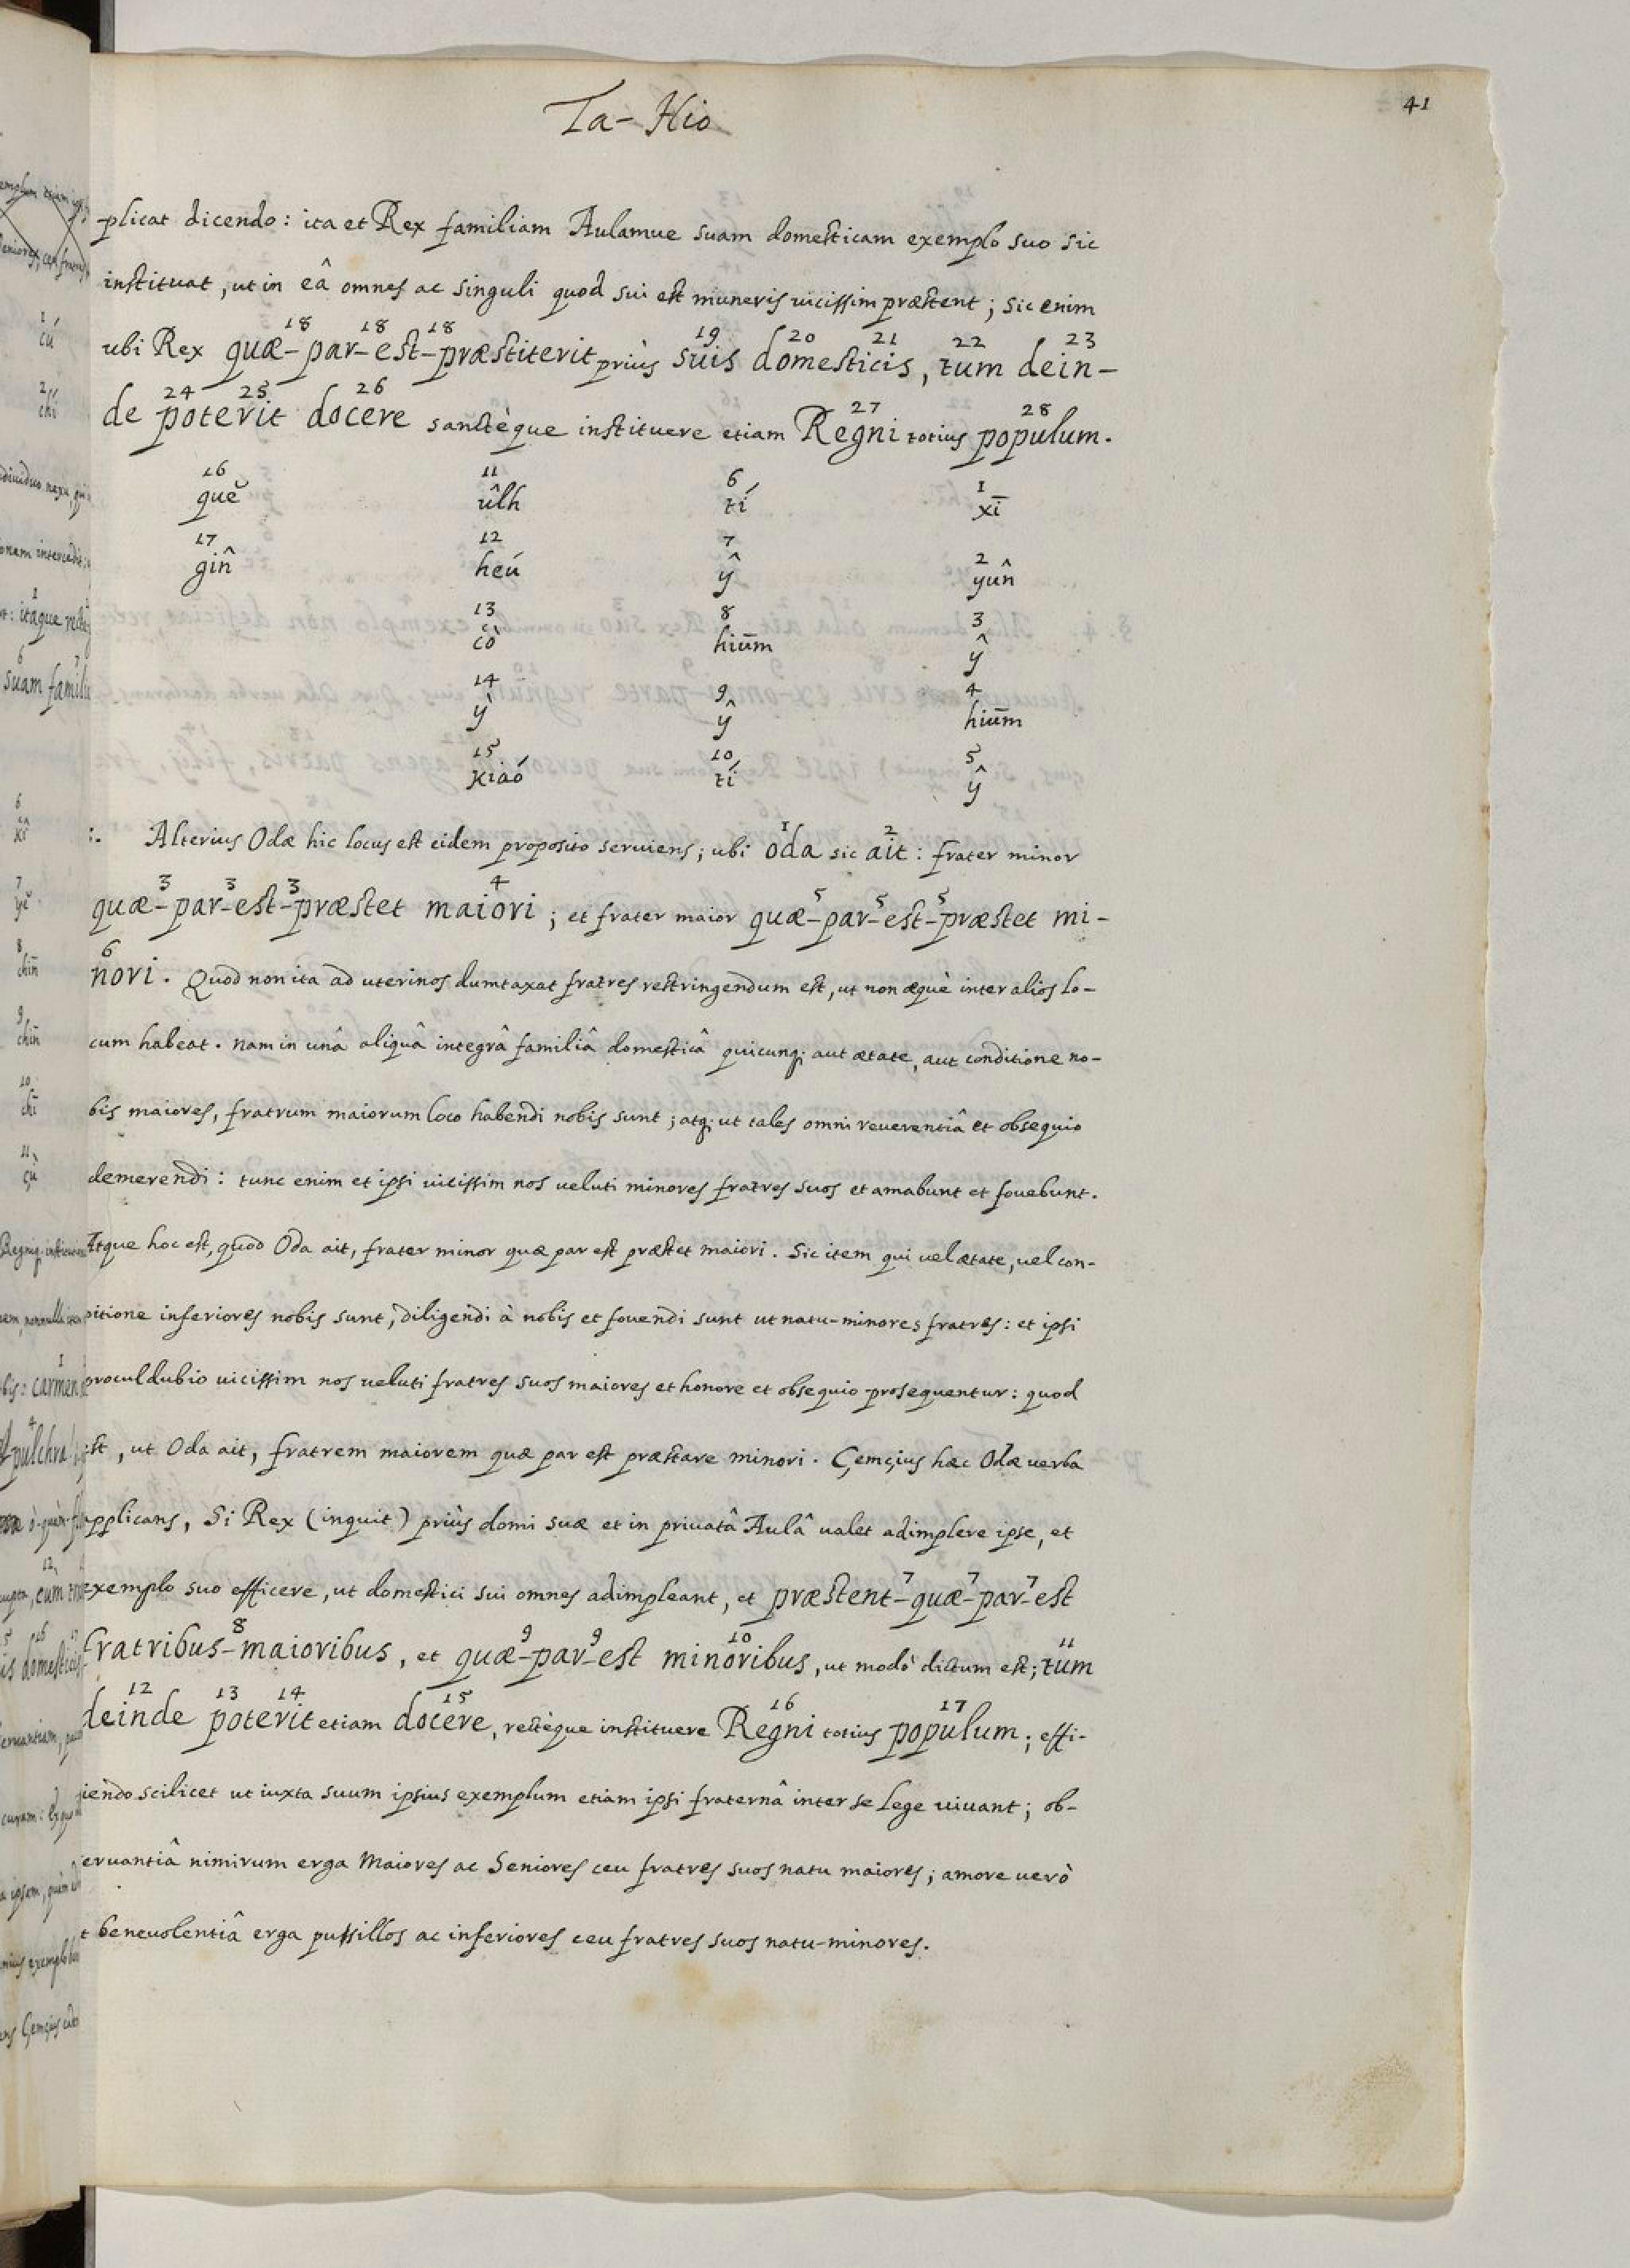 Ta-Hio
41
-plicat dicendo: ita et Rex familiam Aulamue suam domesticam exemplo suo sic
instituat, ut in eâ omnes ac singuli quod sui est muneris uicissim præstent; sic enim
18 18 18 19 20 21 22 23
ubi Rex quæ-par-est-præstiterit priùs suis domesticis, tum dein-
24 25 26 27 28
de poterit docere sanctèque instituere etiam Regni totius populum.
16 11 6 1
quĕ ûlh tí xī
17 12 7 2
gîn heú ŷ yûn
13 8 3
cò hiūm ŷ
14 9 4
ỳ ŷ hiūm
15 10 5
kiaó tí ŷ
1 2
:. Alterius Odæ hic locus est eidem proposito seruiens; ubi Oda sic ait: frater minor
3 3 3 4 5 5 5
quæ-par-est-præstet maiori; et frater maior quæ-par-est-præstet mi-
6
nori. Quod non ita ad uterinos dumtaxat fratres restringendum est, ut non æquè inter alios lo-
cum habeat. nam in unâ aliquâ integrâ familiâ domesticâ quicunq; aut ætate, aut conditione no-
bis maiores, fratrum maiorum loco habendi nobis sunt; atq; ut tales omni reuerentiâ et obsequio
demerendi: tunc enim et ipsi uicissim nos ueluti minores fratres suos et amabunt et fouebunt.
Atque hoc est, quod Oda ait, frater minor quæ par est præstet maiori. Sic item qui uel ætate, uel con-
ditione inferiores nobis sunt, diligendi à nobis et fouendi sunt ut natu-minores fratres: et ipsi
proculdubio uicissim nos ueluti fratres suos maiores et honore et obsequio prosequentur: quod
est, ut Oda ait, fratrem maiorem quæ par est præstare minori. Çemçius hæc Odæ uerba
applicans, Si Rex (inquit) priùs domi suæ et in priuatâ Aulâ ualet adimplere ipse, et
7 7 7
exemplo suo efficere, ut domestici sui omnes adimpleant, et præstent-quæ-par-est
8 9 9 10 11
fratribus-maioribus, et quæ-par-est minoribus, ut modò dictum est; tum
12 13 14 15 16 17
deinde poterit etiam docere, rectèque instituere Regni totius populum; effi-
iendo scilicet ut iuxta suum ipsius exemplum etiam ipsi fraternâ inter se lege uiuant; ob-
seruantiâ nimirum erga Maiores ac Seniores ceu fratres suos natu maiores; amore uerò
et beneuolentiâ erga pusillos ac inferiores ceu fratres suos natu-minores.